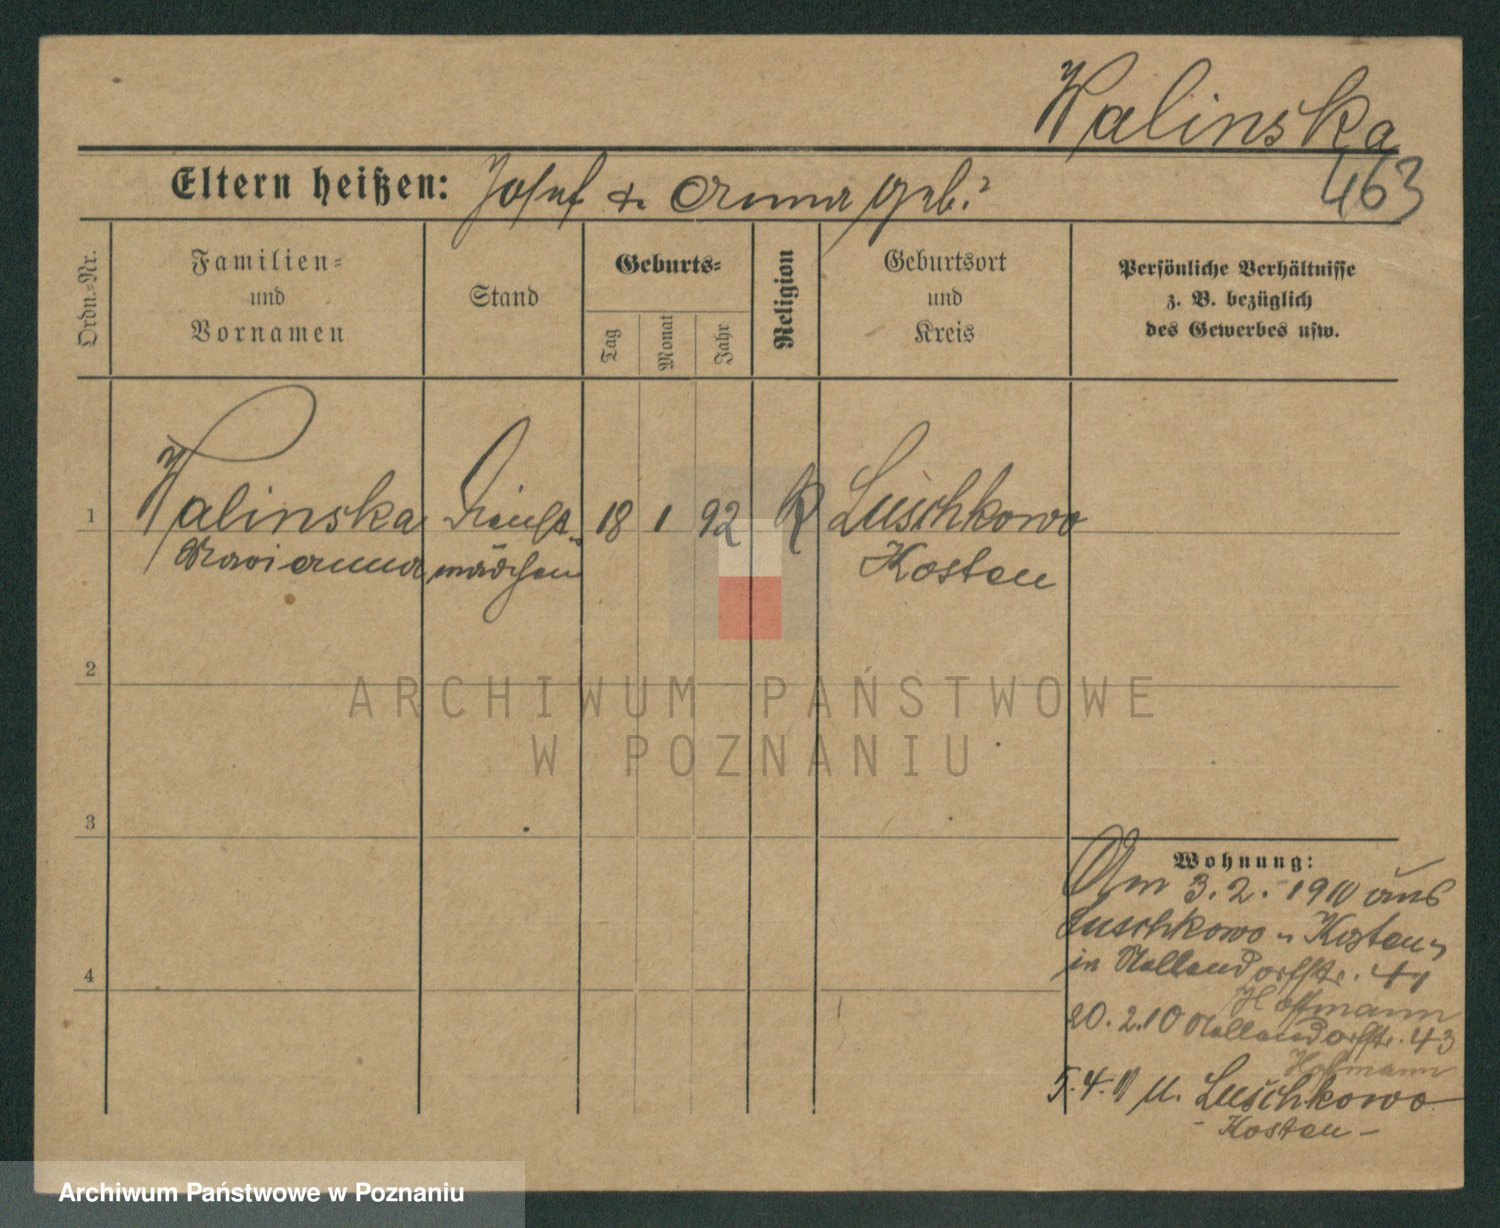 Walinska
463
Eltern heißen: Josef & Anna geb. ?
Ordn.-Nr.
Familien-
und
Vornamen
Stand
Geburts-
Tag
Monat
Jahr
Religion
Geburtsort
und
Kreis
Persönliche Verhältnisse
z. B. bezüglich
des Gewerbes usw.
1 Walinska Dienst- 18 1 92 K Luschkowo
Marianna mädchen Kosten
2
ARCHIWUM PAŃSTWOWE
W POZNANIU
3
Wohnung:
Am 3.2.1910 aus
Luschkowo - Kosten -
in Nollendorfstr. 41
Hoffmann
20.2.10 Nollendorfstr. 43
Hofmann
5.4.11 n. Luschkowo
- Kosten -
4
Archiwum Państwowe w Poznaniu